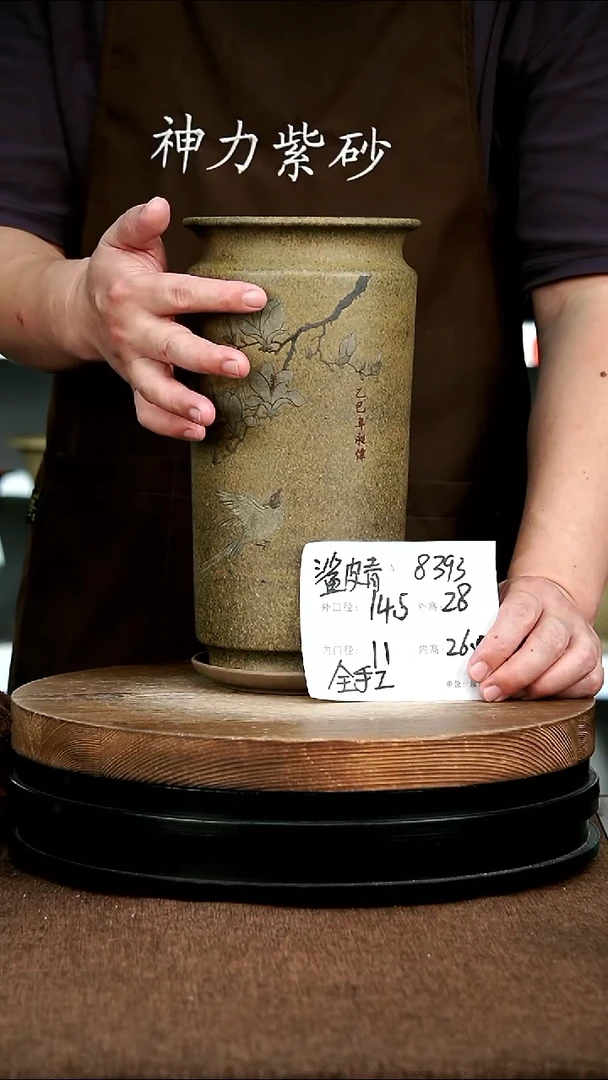 神力紫砂
乙巳年昶偉
鲨皮青 8393
外口径: 14.5 外高: 28
内口径: 11 内高: 26.
全手工 单位: